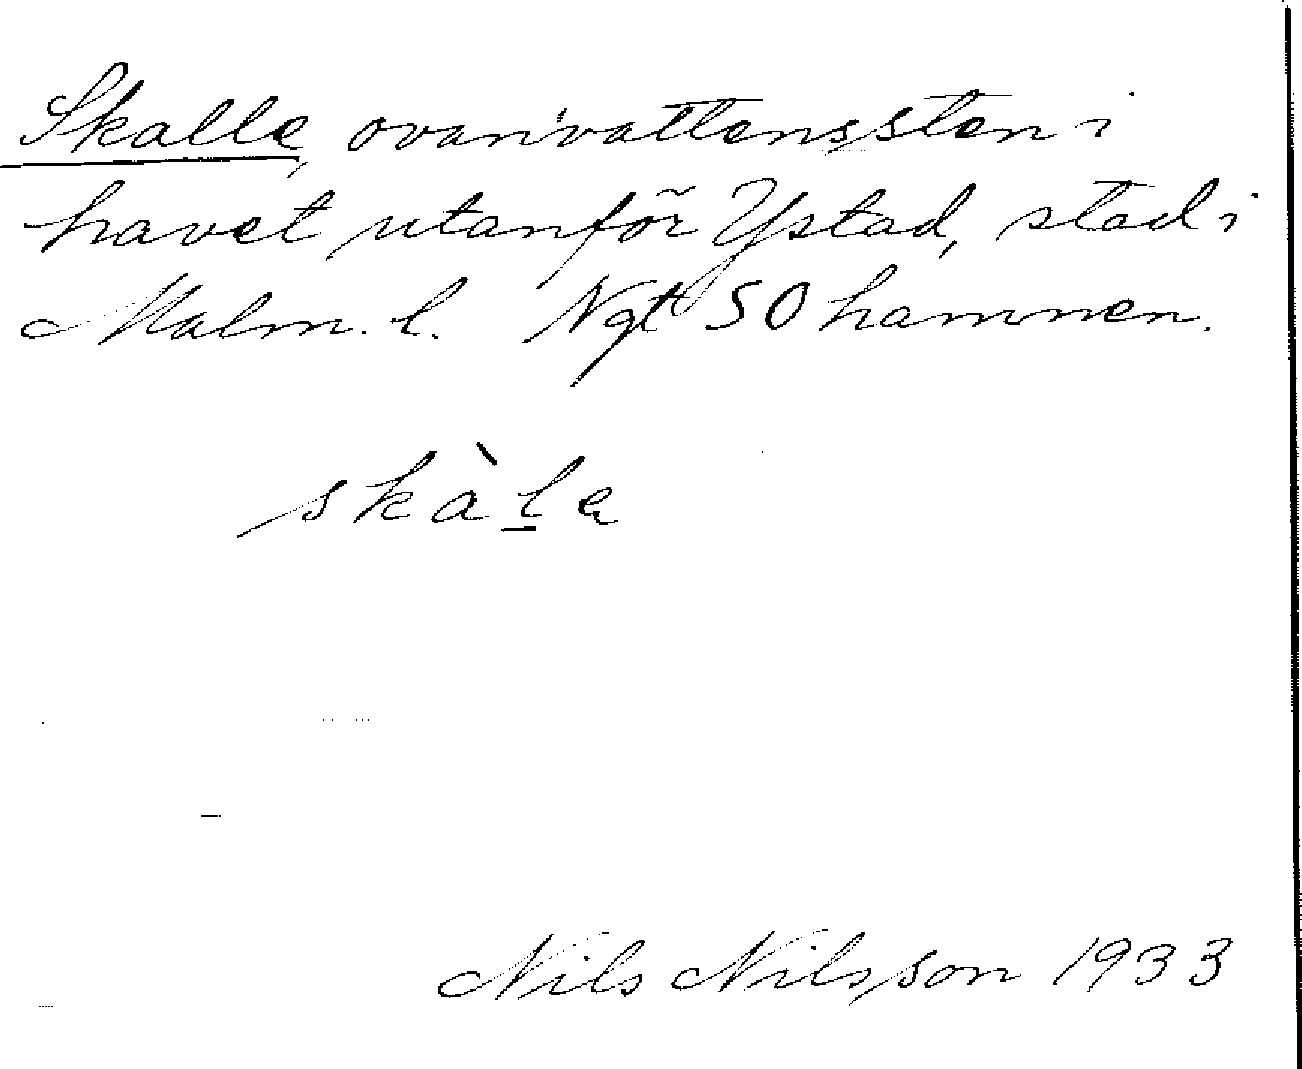 Skalle, ovanvattenssten i
havet utanför Ystad, stad i
Malm. l. Ngt SO hamnen.
skàla
Nils Nilsson 1933